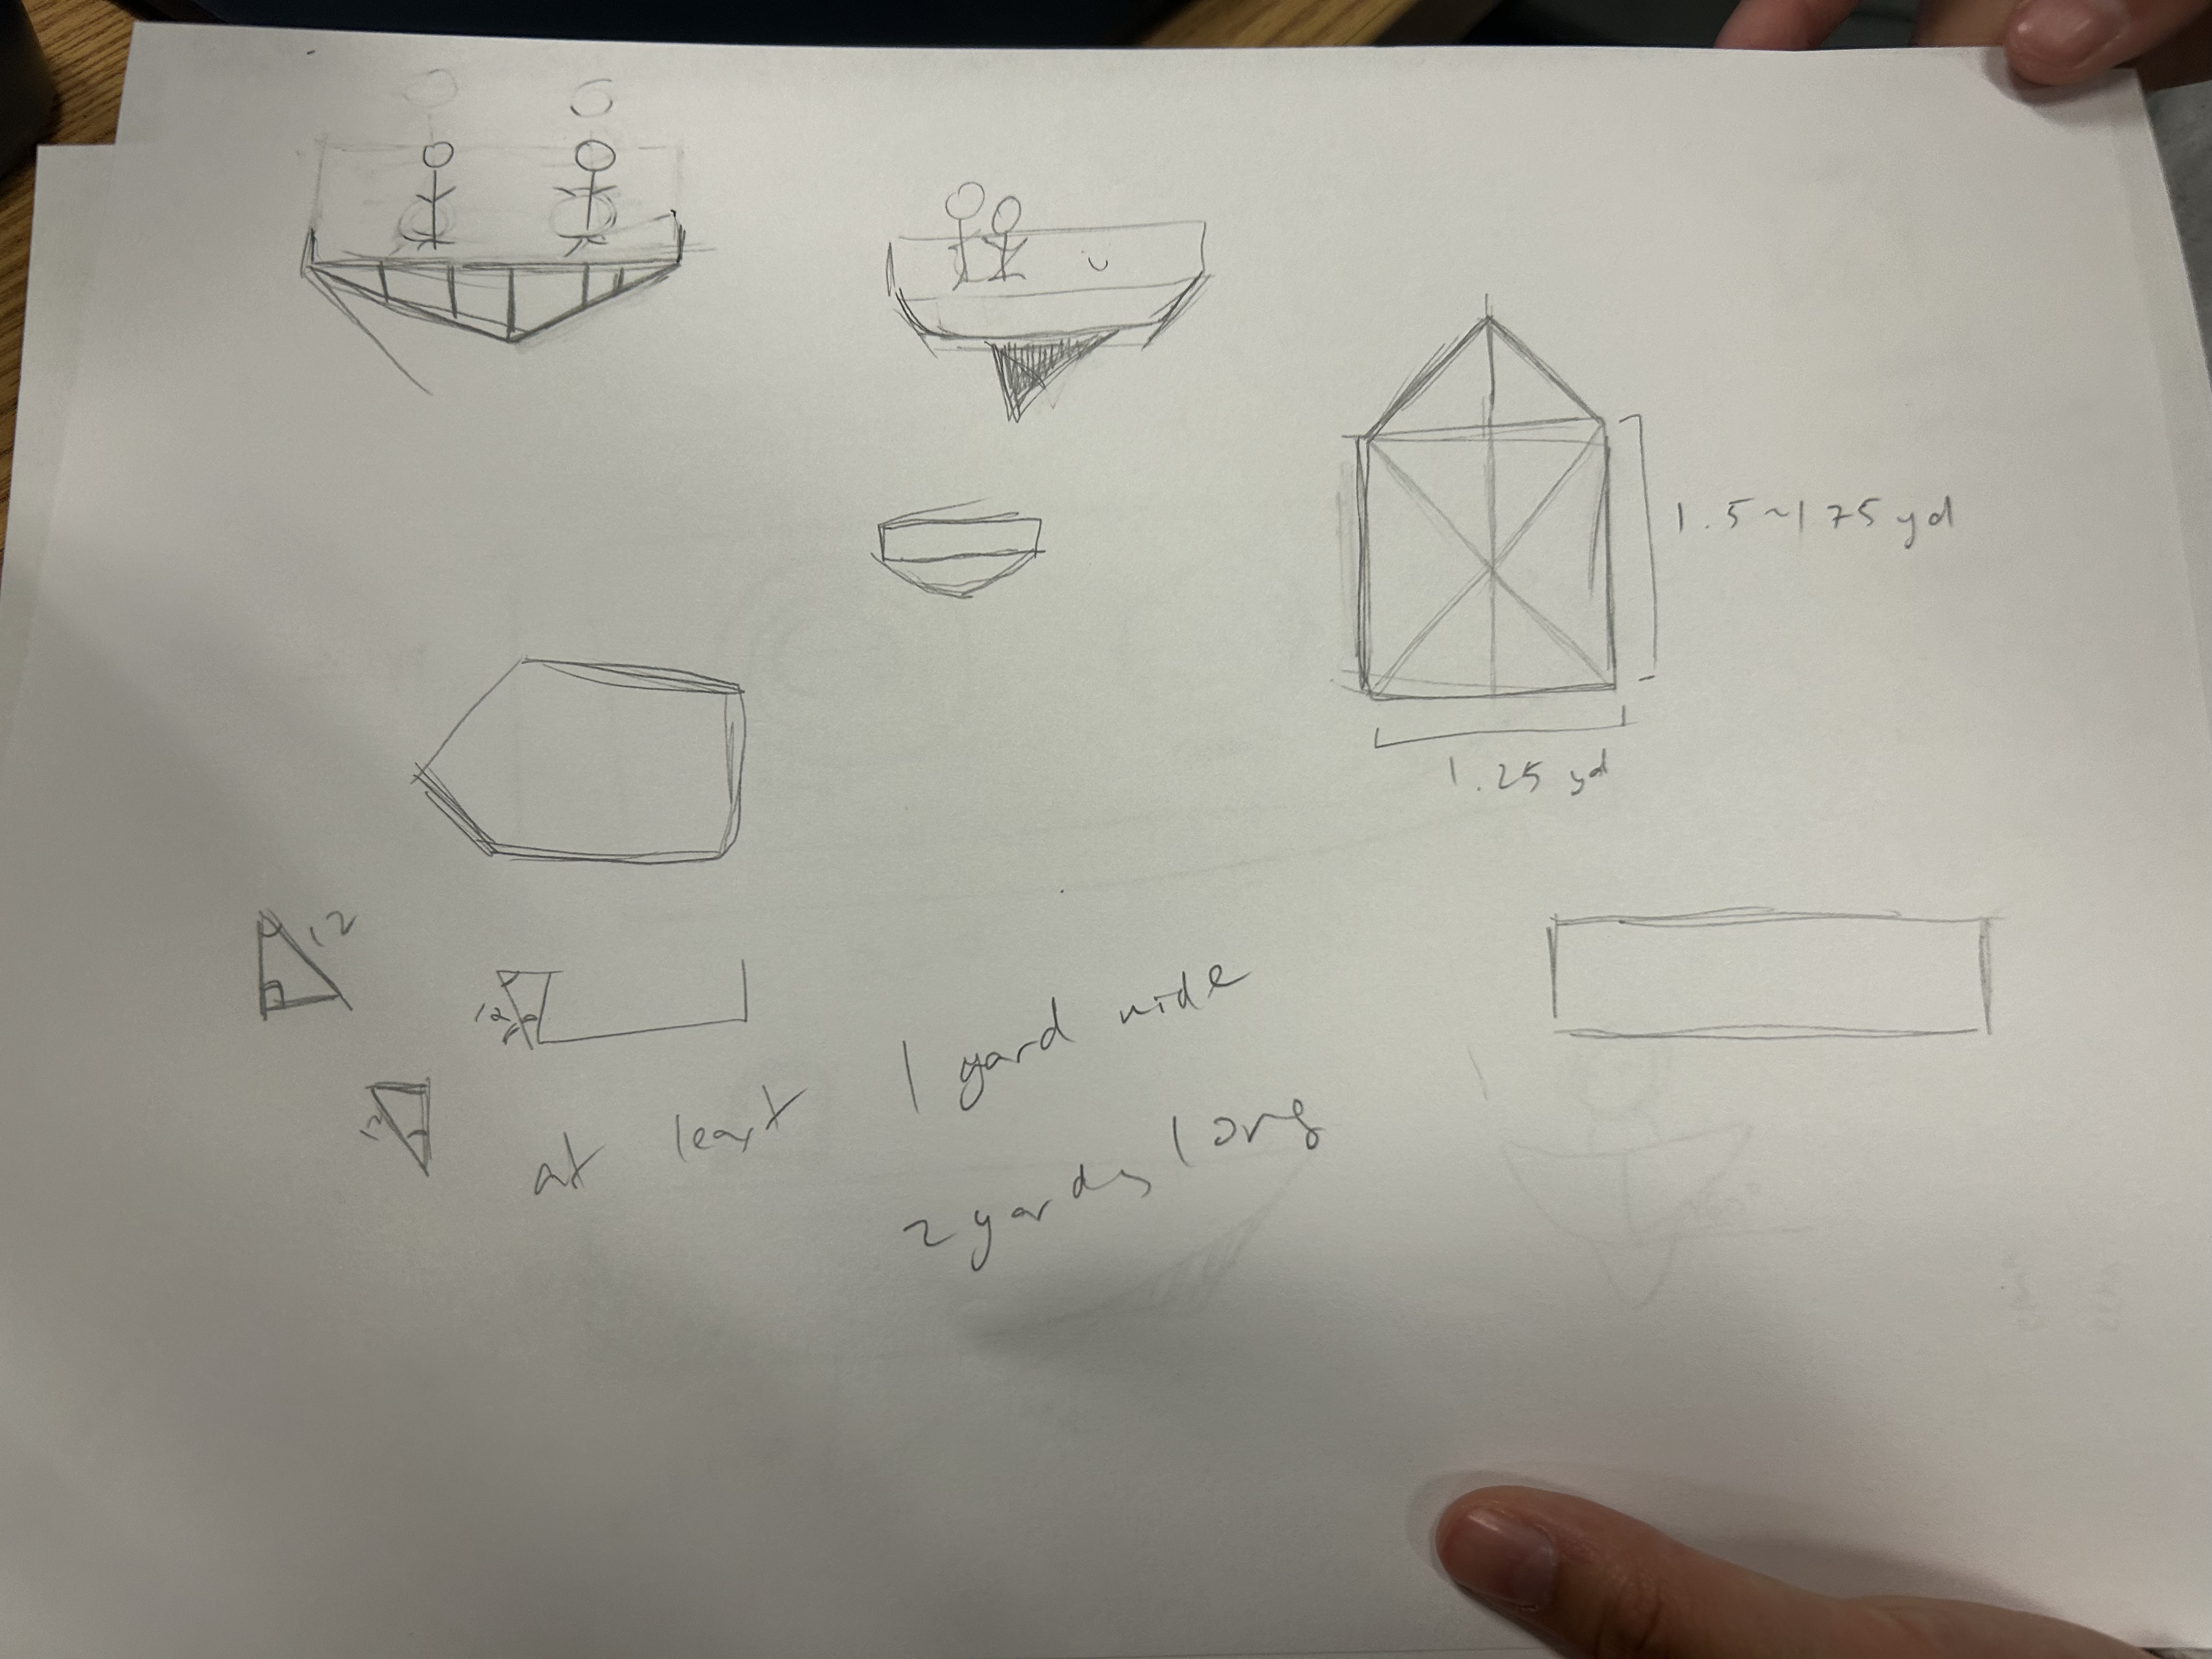 1.5~1 75 yd
1.25 yd
12
12
12
at least 1 yard wide
2 yards long